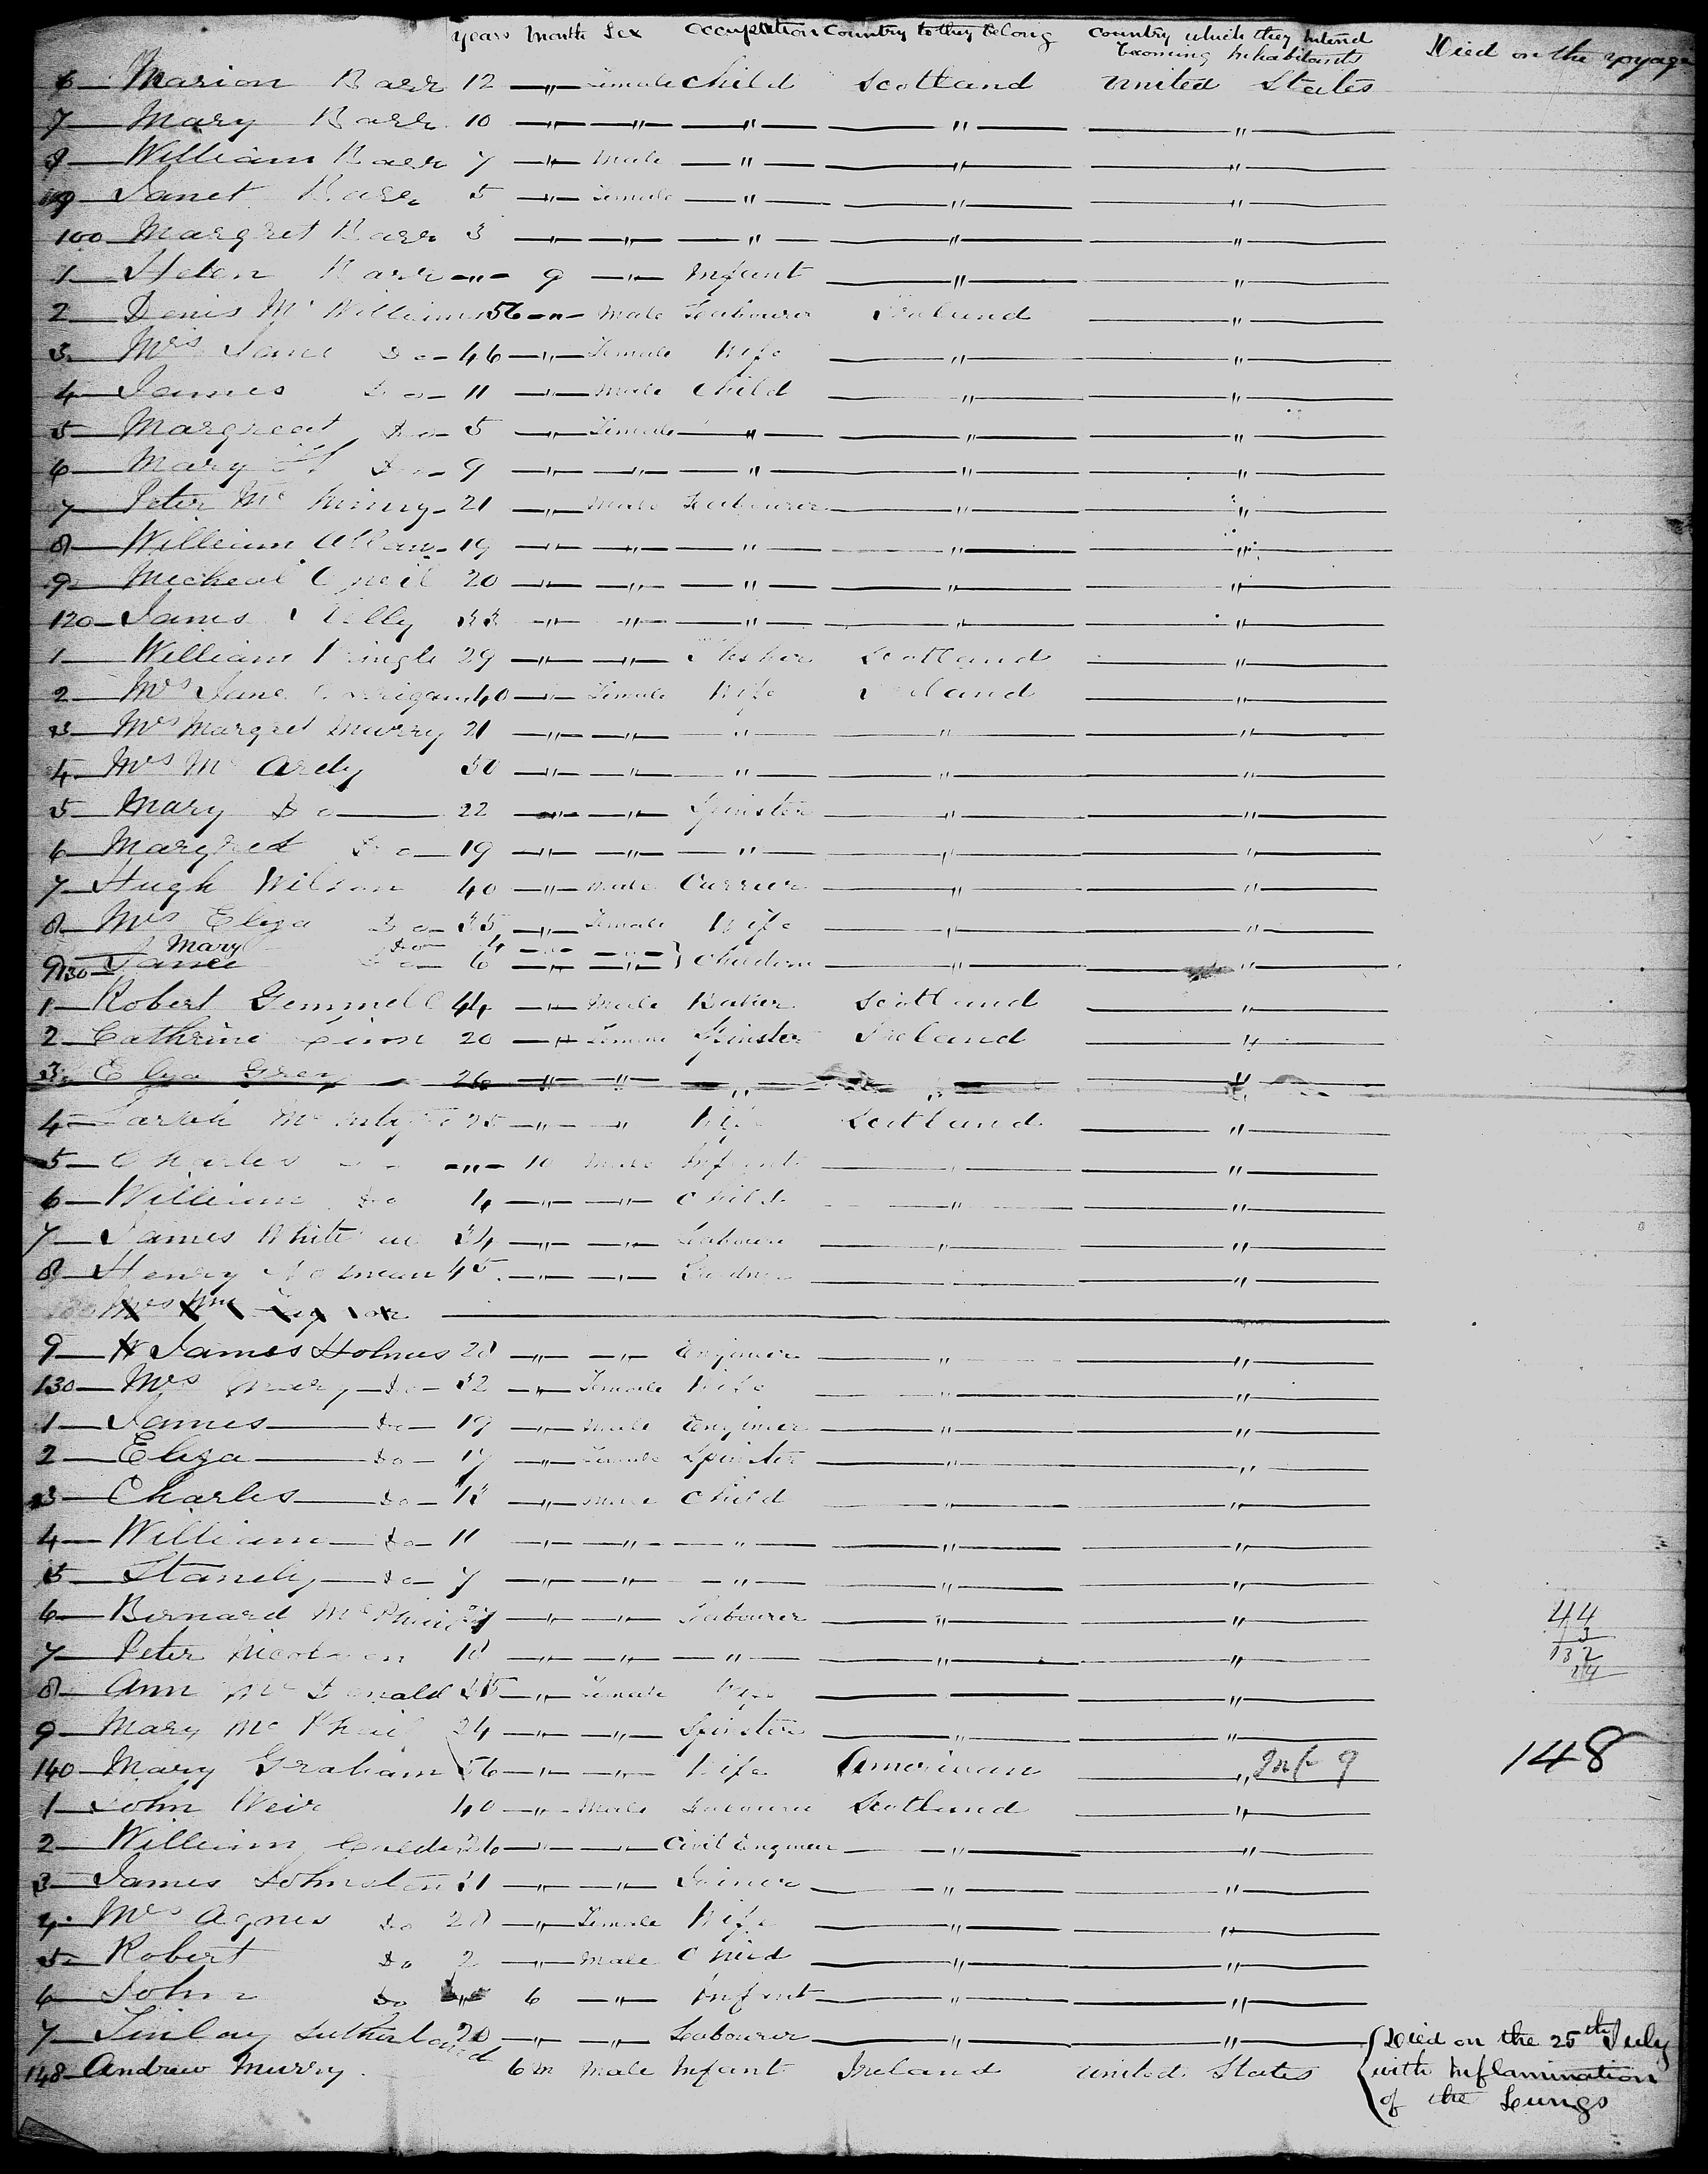 years Month Sex Occupation Country to they Belong Country which they Intend Died on the voyage
Becoming Inhabitants
6 Marion Barr 12 " Female Child Scotland United States
7 Mary Barr 10 " " " " "
8 William Barr 7 " Male " " "
9 Janet Barr 5 " Female " " "
100 Margret Barr 3 " " " " "
1 Helen Barr " 9 " Infant " "
2 Denis Mc Williams 56 " Male Labourer Ireland "
3 Mrs Jane Do 46 " Female Wife " "
4 James Do 11 " Male Child " "
5 Margreat Do 5 " Female " " "
6 Mary Do 9 " " " " "
7 Peter Mc 21 " Male Labourer " "
8 William 19 " " " " "
9 Micheal Oneil 20 " " " " "
120 James Kelly 33 " " " " "
1 William Pringle 29 " " Scotland "
2 Mrs Jane 40 " Female Wife Ireland "
3 Mrs Margret Murry 21 " " " " "
4 Mrs Mc Ardy 50 " " " " "
5 Mary Do 22 " " Spinster " "
6 Margret Do 19 " " " " "
7 Hugh Wilson 40 " Male Currier " "
8 Mrs Eliza Do 35 " Female Wife " "
Mary Do 4 " "
9 130 Jane Do 6 " " } Children " "
1 Robert Gemmell 44 " Male Baker Scotland "
2 Cathrine 20 " Female Spinster Ireland "
3 Eliza Grey 26 " " " " "
4 Sarah Mc 25 " " Wife Scotland "
5 Charles " 10 Male Infant " "
6 William Do 4 " " Child " "
7 James White 34 " " Labourer " "
8 Henry 45 " " " "
Mrs
9 James Holmes 28 " " Engineer " "
130 Mrs Mary Do 32 " Female Wife " "
1 James Do 19 " Male Engineer " "
2 Eliza Do 17 " Female Spinster " "
3 Charles Do 13 " Male Child " "
4 William Do 11 " " " " "
5 Stanely Do 7 " " " " "
6 Bernard " " Labourer " " 44
7 Peter 18 " " " " " 3
132
8 Ann Mc Donald 35 " Female Wife " " 14
9 Mary Mc Phail 24 " " Spinster " "
140 Mary Graham 56 " " Wife American " Inf 9 148
1 John Weir 40 " Male Labourer Scotland "
2 William 26 " " Civil Engineer " "
3 James Johnston 31 " " Joiner " "
4 Mrs Agnes Do 28 " Female Wife " "
5 Robert Do 2 " Male Child " "
6 John Do " 6 " Infant " "
7 Finlay Sutherland 20 " " Labourer " " Died on the 25th July
148 Andrew Murry 6 m Male Infant Ireland United States with Inflamination
of the Lungs